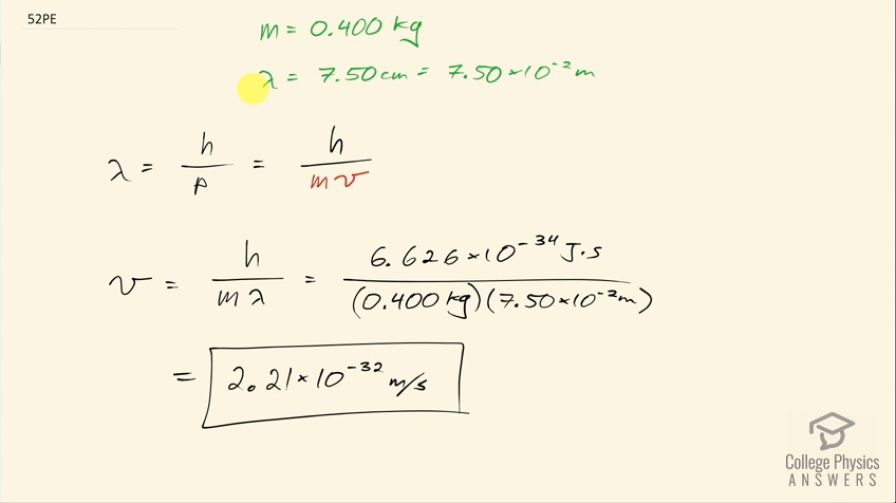 52PE
m = 0.400 kg
λ = 7.50 cm = 7.50 × 10⁻² m
λ = h/p = h/mv
v = h/mλ = 6.626 × 10⁻³⁴ J·s/(0.400 kg)(7.50 × 10⁻² m)
= 2.21 × 10⁻³² m/s
College Physics
ANSWERS